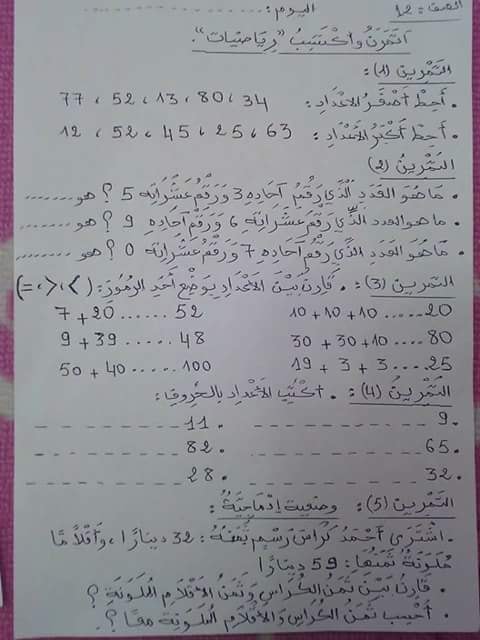 الصف: 12 اليوم: ............
أتمرن وأكتسب "رياضيات".
التمرين (1):
. أحط أصغر الأعداد: 34 ، 80 ، 13 ، 52 ، 77
. أحط أكبر الأعداد: 63 ، 25 ، 45 ، 52 ، 12
التمرين (2)
. ما هو العدد الذي رقم آحاده 3 ورقم عشراته 5 ؟ هو ........
. ما هو العدد الذي رقم عشراته 6 ورقم آحاده 9 ؟ هو ........
. ما هو العدد الذي رقم آحاده 7 ورقم عشراته 0 ؟ هو ........
التمرين (3): . قارن بين الأعداد بوضع أحد الرموز: (> ، < ، =)
10 + 10 + 10 ..... 20 7 + 20 ...... 52
30 + 30 + 10 .... 80 9 + 39 ...... 48
19 + 3 + 3 .... 25 50 + 40 ...... 100
التمرين (4): . أكتب الأعداد بالحروف:
. 9 _ _ _ _ _ _ _ _ . 11 _ _ _ _ _ _ _ _
. 65 _ _ _ _ _ _ _ _ . 82 _ _ _ _ _ _ _ _
. 32 _ _ _ _ _ _ _ _ . 28 _ _ _ _ _ _ _ _
التمرين (5): وضعية إدماجية:
. اشترى أحمد كراس رسم ثمنه: 32 دينارا ، وأقلاما
ملونة ثمنها: 59 دينارا
. قارن بين ثمن الكراس وثمن الأقلام الملونة ؟
. أحسب ثمن الكراس والأقلام الملونة معا ؟.